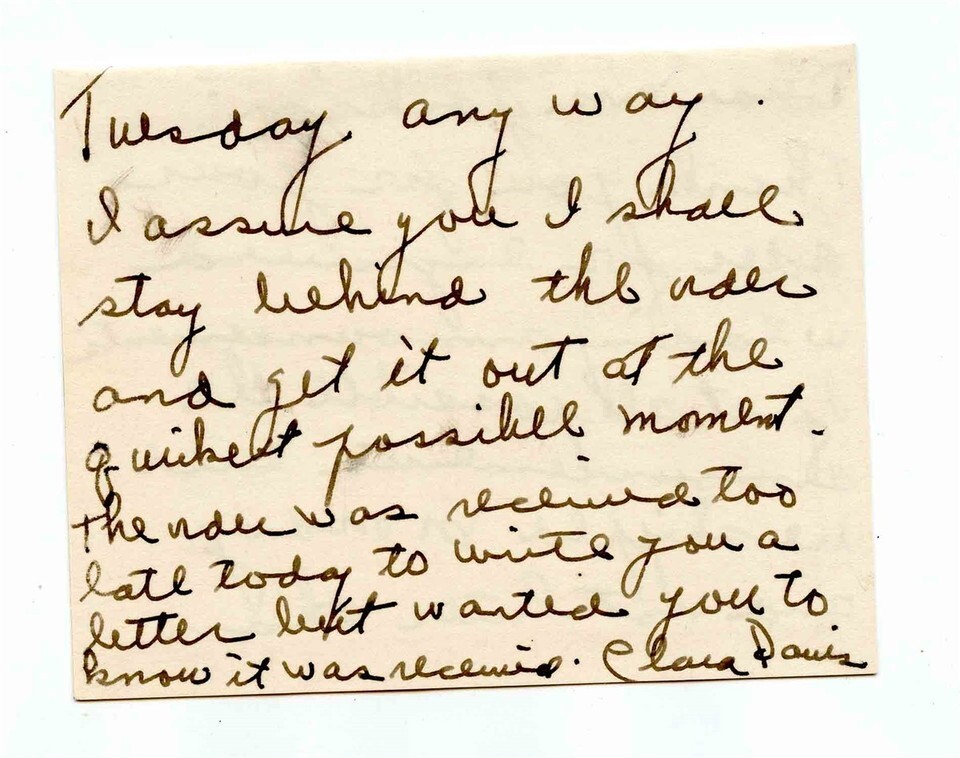 Tuesday any way.
I assure you I shall
stay behind the order
and get it out at the
quickest possible moment.
the order was received too
late today to write you a
letter but wanted you to
know it was received. Clara Davis